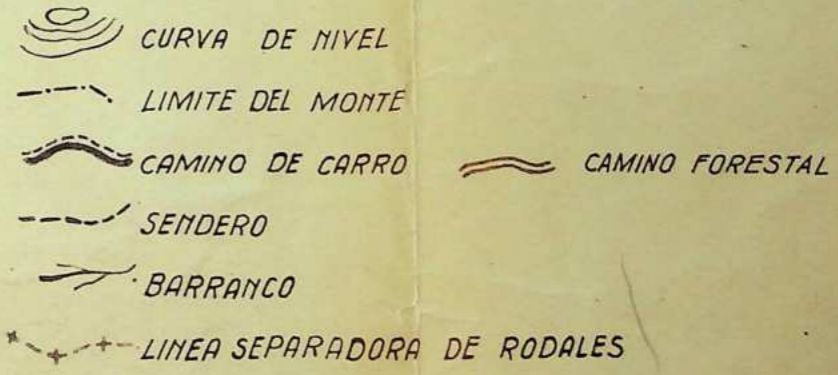 CURVA DE NIVEL
LIMITE DEL MONTE
CAMINO DE CARRO
CAMINO FORESTAL
SENDERO
BARRANCO
LINEA SEPARADORA DE RODALES